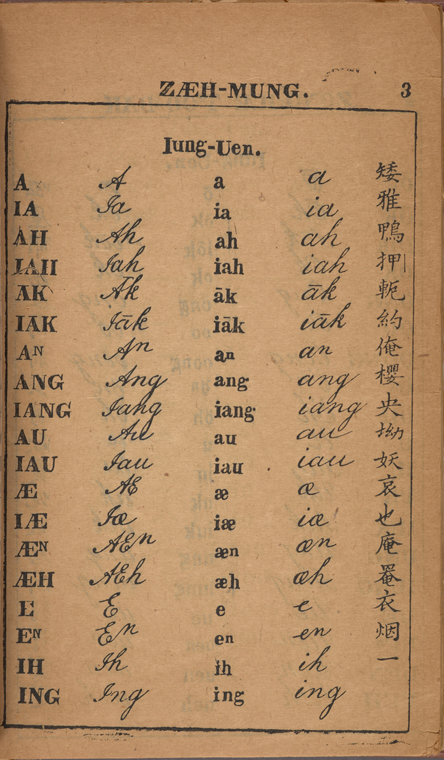 ZÆH-MUNG. 3
Iung-Uen.
A A a a 矮
IA Ia ia ia 雅
AH Ah ah ah 鴨
IAH Iah iah iah 押
ĀK Āk āk āk 軛
IĀK Iāk iāk iāk 約
Aᴺ An an an 俺
ANG Ang ang ang 櫻
IANG Iang iang iang 央
AU Au au au 拗
IAU Iau iau iau 妖
Æ Æ æ æ 哀
IÆ Iæ iæ iæ 也
Æᴺ Æn æn æn 庵
ÆH Æh æh æh 罨
E E e e 衣
Eᴺ En en en 烟
IH Ih ih ih 一
ING Ing ing ing